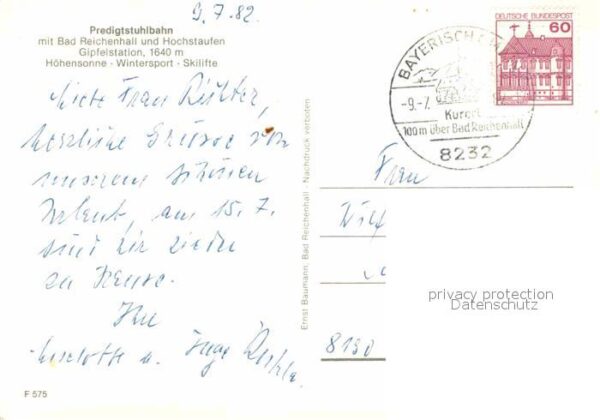 9.7.82
Predigtstuhlbahn
mit Bad Reichenhall und Hochstaufen
Gipfelstation, 1640 m
Höhensonne · Wintersport · Skilifte
Liebe Frau Richter,
herzliche Grüsse von
unserem schönen
Urlaub, am 15.7.
sind wir wieder
zu Hause.
Ihre
Liselotte u. Inge
F 575
Ernst Baumann, Bad Reichenhall - Nachdruck verboten
BAYERISCH
-9.-7.
Kurort
100 m über Bad Reichenhall
8232
DEUTSCHE BUNDESPOST
60
Frau
8130
privacy protection
Datenschutz